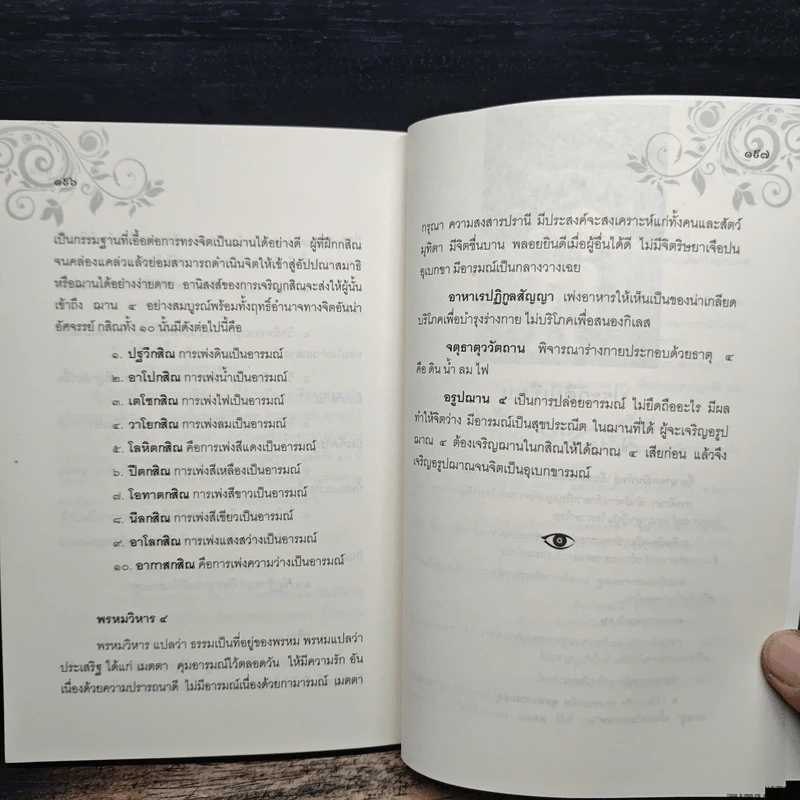 ๑๙๖
เป็นกรรมฐานที่เอื้อต่อการทรงจิตเป็นฌานได้อย่างดี ผู้ที่ฝึกกสิณ
จนคล่องแคล่วแล้วย่อมสามารถดำเนินจิตให้เข้าสู่อัปปณาสมาธิ
หรือฌานได้อย่างง่ายดาย อานิสงส์ของการเจริญกสิณจะส่งให้ผู้นั้น
เข้าถึง ฌาน ๔ อย่างสมบูรณ์พร้อมทั้งฤทธิ์อำนาจทางจิตอันน่า
อัศจรรย์ กสิณทั้ง ๑๐ นั้นมีดังต่อไปนี้คือ
๑. ปฐวีกสิณ การเพ่งดินเป็นอารมณ์
๒. อาโปกสิณ การเพ่งน้ำเป็นอารมณ์
๓. เตโชกสิณ การเพ่งไฟเป็นอารมณ์
๔. วาโยกสิณ การเพ่งลมเป็นอารมณ์
๕. โลหิตกสิณ คือการเพ่งสีแดงเป็นอารมณ์
๖. ปีตกสิณ การเพ่งสีเหลืองเป็นอารมณ์
๗. โอทาตกสิณ การเพ่งสีขาวเป็นอารมณ์
๘. นีลกสิณ การเพ่งสีเขียวเป็นอารมณ์
๙. อาโลกสิณ การเพ่งแสงสว่างเป็นอารมณ์
๑๐. อากาสกสิณ คือการเพ่งความว่างเป็นอารมณ์
พรหมวิหาร ๔
พรหมวิหาร แปลว่า ธรรมเป็นที่อยู่ของพรหม พรหมแปลว่า
ประเสริฐ ได้แก่ เมตตา คุมอารมณ์ไว้ตลอดวัน ให้มีความรัก อัน
เนื่องด้วยความปรารถนาดี ไม่มีอารมณ์เนื่องด้วยกามารมณ์ เมตตา
๑๙๗
กรุณา ความสงสารปรานี มีประสงค์จะสงเคราะห์แก่ทั้งคนและสัตว์
มุทิตา มีจิตชื่นบาน พลอยยินดีเมื่อผู้อื่นได้ดี ไม่มีจิตริษยาเจือปน
อุเบกขา มีอารมณ์เป็นกลางวางเฉย
อาหาเรปฏิกูลสัญญา เพ่งอาหารให้เห็นเป็นของน่าเกลียด
บริโภคเพื่อบำรุงร่างกาย ไม่บริโภคเพื่อสนองกิเลส
จตุธาตุววัตถาน พิจารณาร่างกายประกอบด้วยธาตุ ๔
คือ ดิน น้ำ ลม ไฟ
อรูปฌาน ๔ เป็นการปล่อยอารมณ์ ไม่ยึดถืออะไร มีผล
ทำให้จิตว่าง มีอารมณ์เป็นสุขประณีต ในฌานที่ได้ ผู้จะเจริญอรูป
ฌาณ ๔ ต้องเจริญฌานในกสิณให้ได้ฌาณ ๔ เสียก่อน แล้วจึง
เจริญอรูปฌาณจนจิตเป็นอุเบกขารมณ์